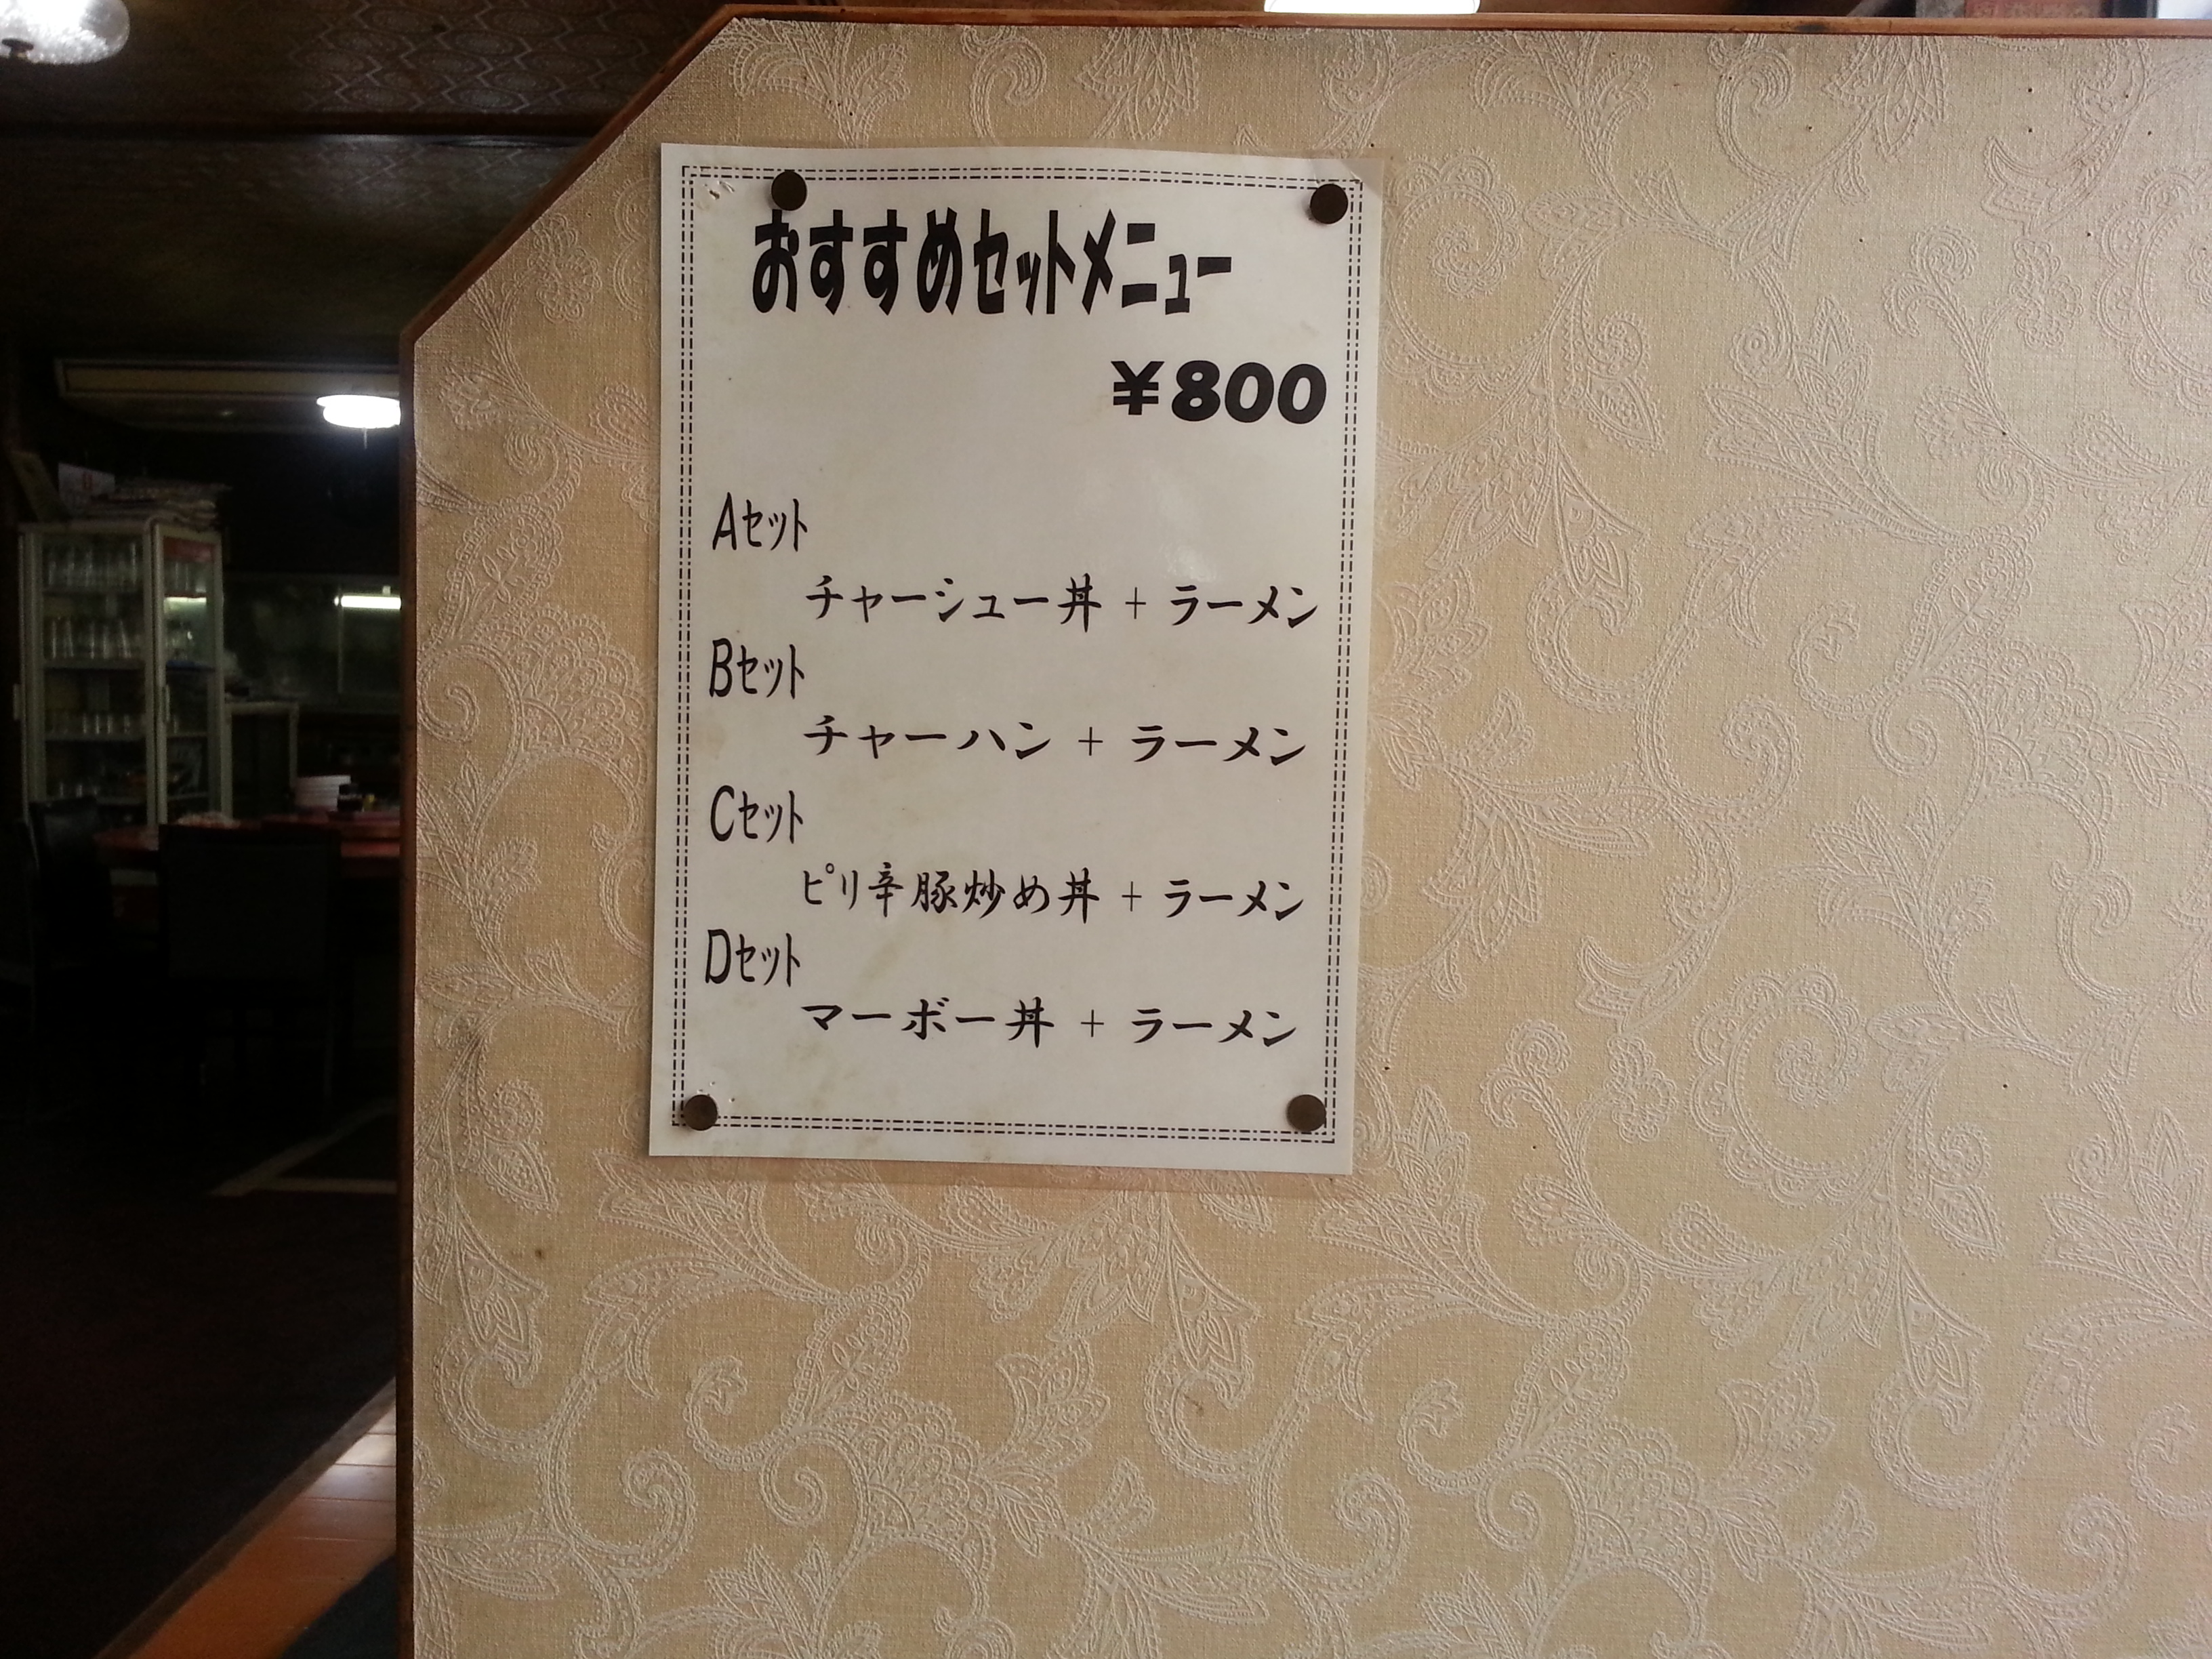 おすすめセットメニュー
￥800
Aセット
チャーシュー丼 + ラーメン
Bセット
チャーハン + ラーメン
Cセット
ピリ辛豚炒め丼 + ラーメン
Dセット
マーボー丼 + ラーメン